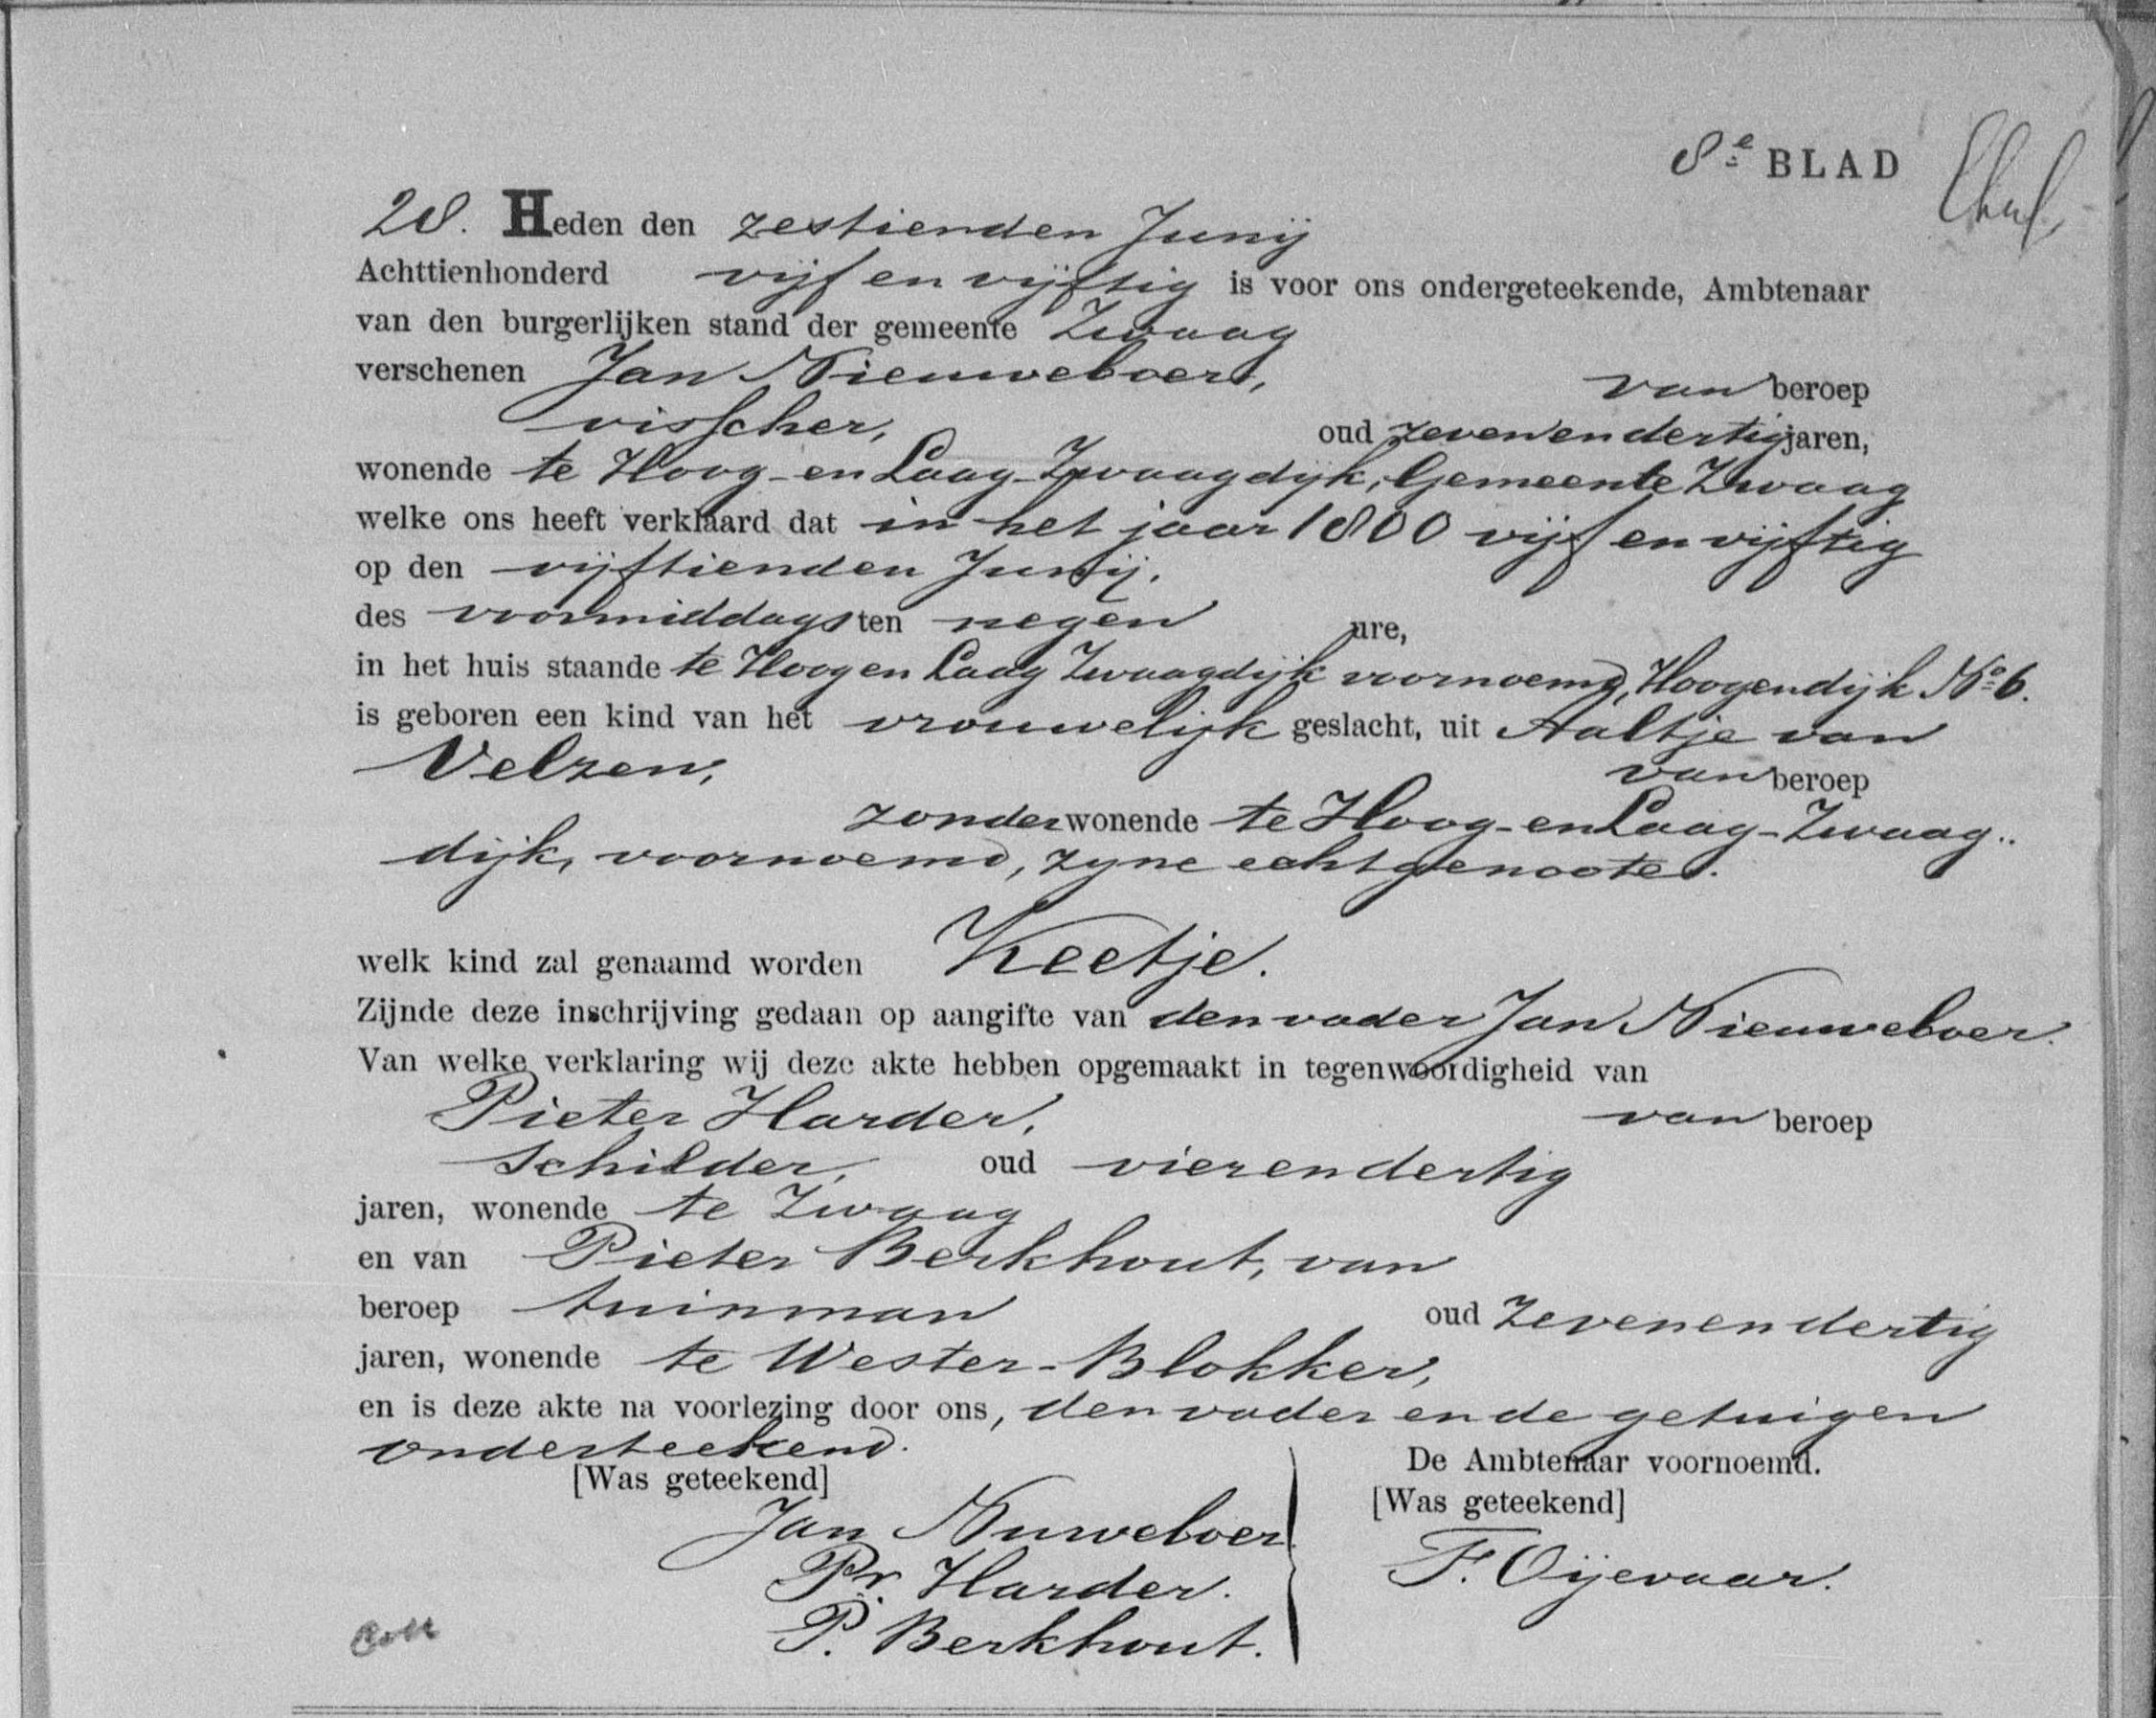 8e BLAD
28. Heden den zestienden Junij
Achttienhonderd vijf en vijftig is voor ons ondergeteekende, Ambtenaar
van den burgerlijken stand der gemeente Zwaag
verschenen Jan Nieuweboer, van beroep
visscher, oud zevenendertig jaren,
wonende te Hoog-en Laag-Zwaagdijk, Gemeente Zwaag
welke ons heeft verklaard dat in het jaar 1800 vijf en vijftig
op den vijftienden Junij.
des voormiddags ten negen ure,
in het huis staande te Hoog en Laag Zwaagdijk voornoemd, Hoogendijk No 6.
is geboren een kind van het vrouwelijk geslacht, uit Aaltje van
Velzen, van beroep
zonder wonende te Hoog-en Laag-Zwaag..
dijk, voornoemd, zyne echtgenoote.
welk kind zal genaamd worden Keetje.
Zijnde deze inschrijving gedaan op aangifte van den vader Jan Nieuweboer.
Van welke verklaring wij deze akte hebben opgemaakt in tegenwoordigheid van
Pieter Harder, van beroep
Schilder, oud vierendertig
jaren, wonende te Zwaag
en van Pieter Berkhout, van
beroep tuinman oud Zevenendertig
jaren, wonende te Wester-Blokker,
en is deze akte na voorlezing door ons, den vader en de getuigen
onderteekend.
[Was geteekend] De Ambtenaar voornoemd.
[Was geteekend]
Jan Nuweboer
Pr. Harder. F. Oijevaar.
P. Berkhout.